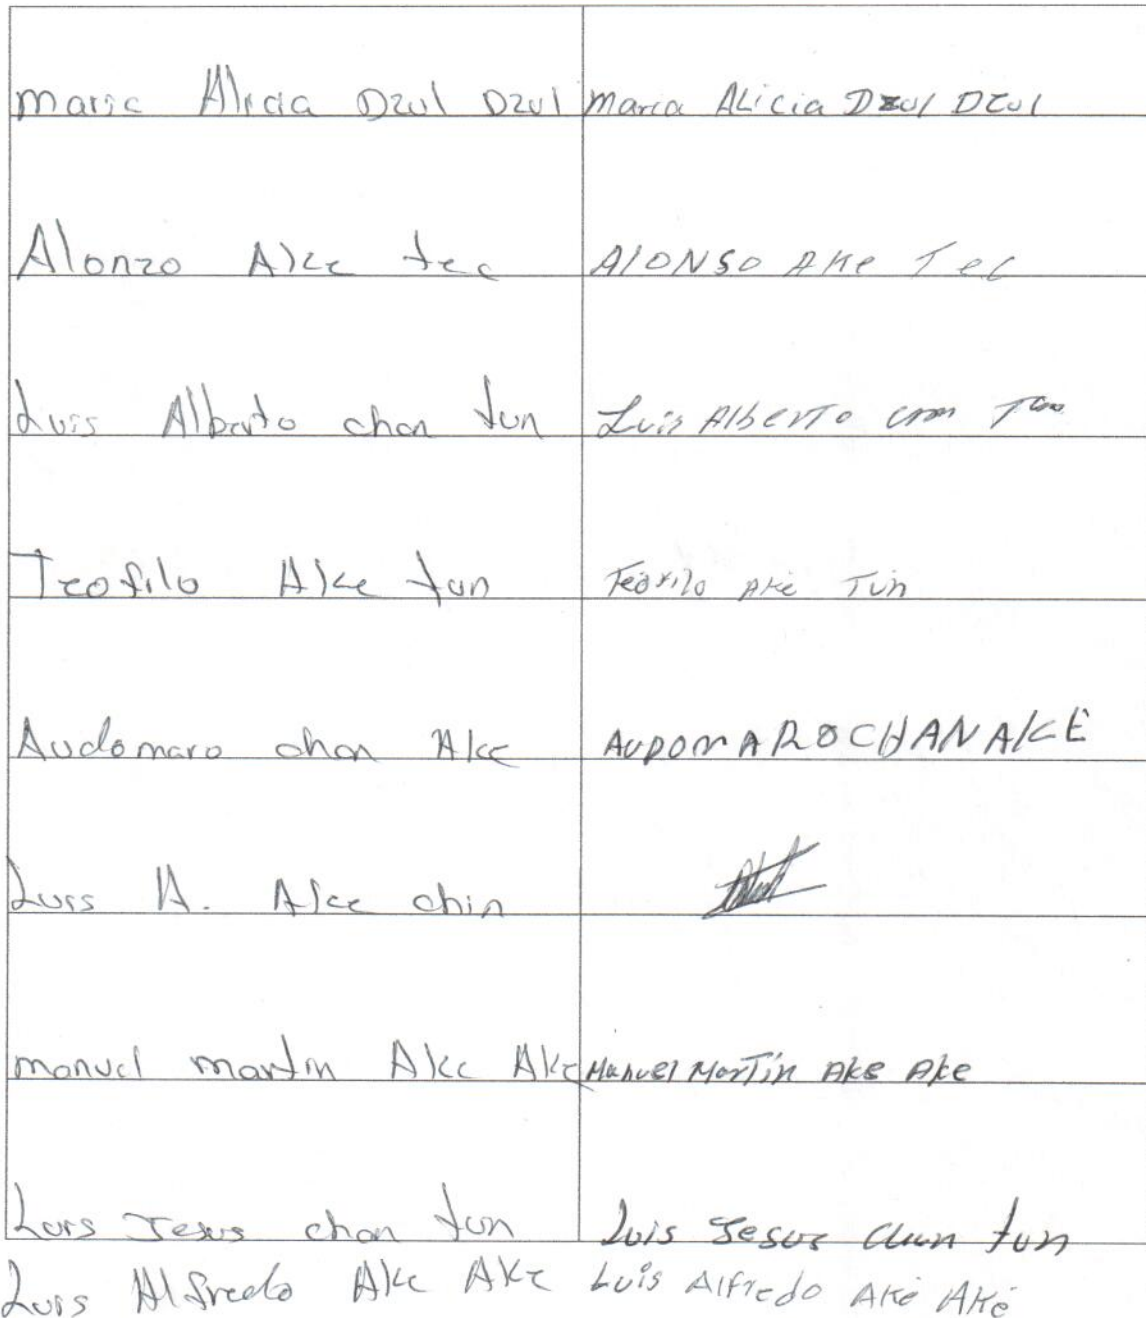 Maria Alicia Dzul Dzul Maria ALicia Dzul Dzul
Alonzo Ake tec AlONSO AKe Tec
Luis Alberto chan tun Luis AlberTo
Teofilo Ake tun Teófilo Aké Tún
Audomaro chan Ake AUDOMARO CHAN AKÉ
Luis A. Ake chin
manuel martin Ake Ake Manuel MarTín Ake Ake
Luis Jesus chan tun Luis Jesus chan tun
Luis Alfredo Ake Ake Luis Alfredo Aké Aké